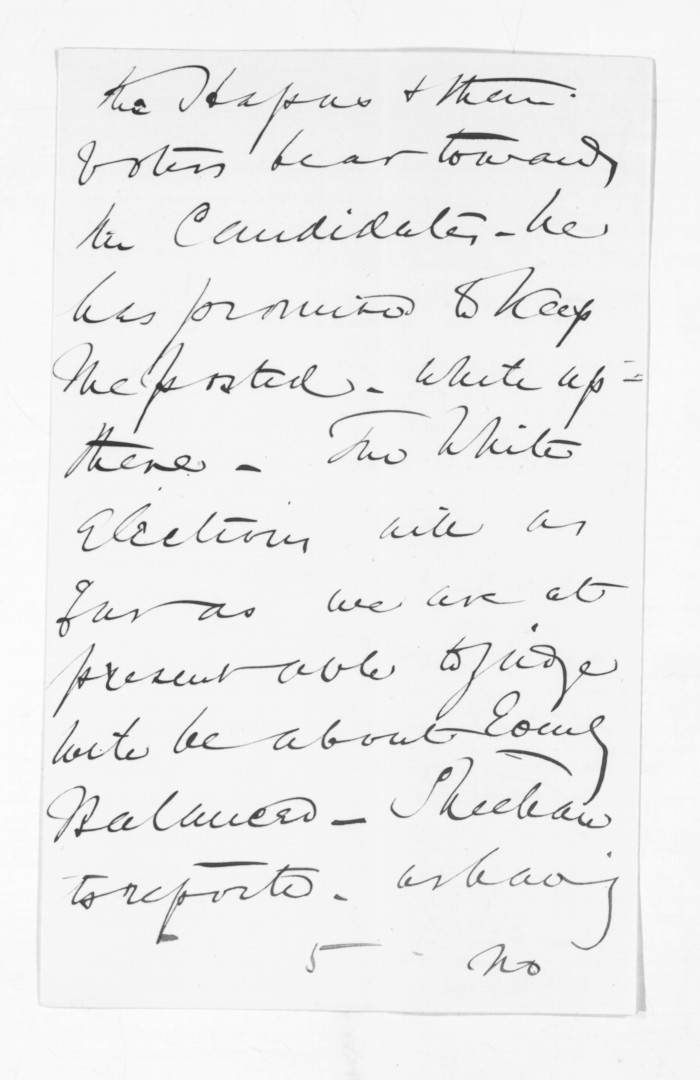 the Hapus & their
Voters bear towards
the Candidates - he
has promised to keep
me posted - while up =
there - The White
Elections will as
far as we are at
present able to judge
will be about Equally
Balanced - Sheehan
is reported - as having
5 - no